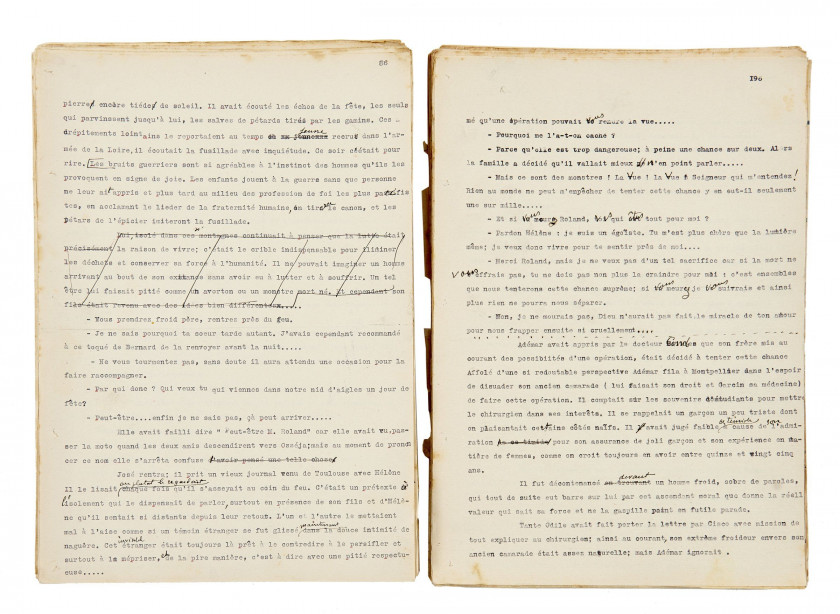 86
pierres encore tièdes de soleil. Il avait écouté les échos de la fête, les seuls
qui parvinssent jusqu'à lui, les salves de pétards tirés par les gamins. Ces
crépitements lointains le reportaient au temps jeune recrue dans l'ar-
mée de la Loire, il écoutait la fusillade avec inquiétude. Ce soir c'était pour
rire. Les bruits guerriers sont si agréables à l'instinct des hommes qu'ils les
provoquent en signe de joie. Les enfants jouent à la guerre sans que personne
ne leur ait appris et plus tard au milieu des profession de foi les plus pacifistes
tes, en acclamant le lieder de la fraternité humaine, on tire le canon, et les
pétards de l'épicier imiteront la fusillade.
Lui, isolé dans ces montagnes continuait à penser que la lutte était
précisément la raison de vivre; c'était le crible indispensable pour éliminer
les déchets et conserver sa force à l'humanité. Il ne pouvait imaginer un homme
arrivant au bout de son existence sans avoir eu à lutter et à souffrir. Un tel
être lui faisait pitié comme un avorton ou un monstre mort né. Et cependant son
fils était revenu avec des idées bien différentes.....
- Vous prendrez froid père, rentrez près du feu.
- Je ne sais pourquoi ta soeur tarde autant. J'avais cependant recommandé
à ce toqué de Bernard de la renvoyer avant la nuit.....
- Ne vous tourmentez pas, sans doute il aura attendu une occasion pour la
faire raccompagner.
- Par qui donc ? Qui veux tu qui vienne dans notre nid d'aigles un jour de
fête?
- Peut-être....enfin je ne sais pas, çà peut arriver.....
Elle avait failli dire " Peut-être M. Roland" car elle avait vu, pas-
ser la moto quand les deux amis descendirent vers Osséja; mais au moment de pronon
cer ce nom elle s'arrêta confuse d'avoir pensé une telle chose
José rentra; il prit un vieux journal venu de Toulouse avec Hélène
Il le lisait chaque fois qu'il s'asseyait au coin du feu. C'était un prétexte à
l'isolement qui le dispensait de parler, surtout en présence de son fils et d'Hélè-
ne qu'il sentait si distants depuis leur retour. L'un et l'autre le mettaient
mal à l'aise comme si un témoin étranger se fut glissé maintenant dans la douce intimité de
naguère. Cet étranger invisible était toujours là prêt à le contredire à le persifler et
surtout à le mépriser, de la pire manière, c'est à dire avec une pitié respectu-
euse.....
190
mé qu'une opération pouvait vous rendre la vue.....
- Pourquoi me l'a-t-on caché ?
- Parce qu'elle est trop dangereuse; à peine une chance sur deux. Alors
la famille a décidé qu'il vallait mieux n'en point parler.....
- Mais ce sont des monstres ! La Vue ! La Vue ! Seigneur qui m'entendez!
Rien au monde ne peut m'empêcher de tenter cette chance y en eut-il seulement
une sur mille.....
- Et si vous mourez Roland, vous qui êtes tout pour moi ?
- Pardon Hélène : je suis un égoïste. Tu m'est plus chère que la lumière
même; je veux donc vivre pour te sentir près de moi....
- Merci Roland, mais je ne veux pas d'un tel sacrifice car si la mort ne
vous effrais pas, tu ne dois pas non plus la craindre pour moi : c'est ensembles
que nous tenterons cette chance suprême; si vous mourez je vous suivrais et ainsi
plus rien ne pourra nous séparer.
- Non, je ne mourais pas, Dieu n'aurait pas fait le miracle de ton amour
pour nous frapper ensuite si cruellement....
Adémar avait appris par le docteur que son frère mis au
courant des possibilités d'une opération, était décidé à tenter cette chance
Affolé d'une si redoutable perspective Adémar fila à Montpellier dans l'espoir
de disuader son ancien camarade ( lui faisait son droit et Garcin sa médecine)
de faire cette opération. Il comptait sur les souvenirs d'étudiants pour mettre
le chirurgien dans ses intérêts. Il se rappelait un garçon un peu triste dont
on plaisantait certains côtés naïfs. Il l'avait jugé faible et timide à cause de son admi-
ration pour son assurance de joli garçon et son expérience en ma-
tière de femmes, comme on croit toujours en avoir entre quinze et vingt cinq
ans.
Il fut décontenancé devant un homme froid, sobre de paroles,
qui tout de suite eut barre sur lui par cet ascendant moral que donne la réell
valeur qui sait sa force et ne la gaspille point en futile parade.
Tante Odile avait fait porter la lettre par Cisco avec mission de
tout expliquer au chirurgien; ainsi au courant, son extrême froideur envers son
ancien camarade était assez naturelle; mais Adémar ignorait .